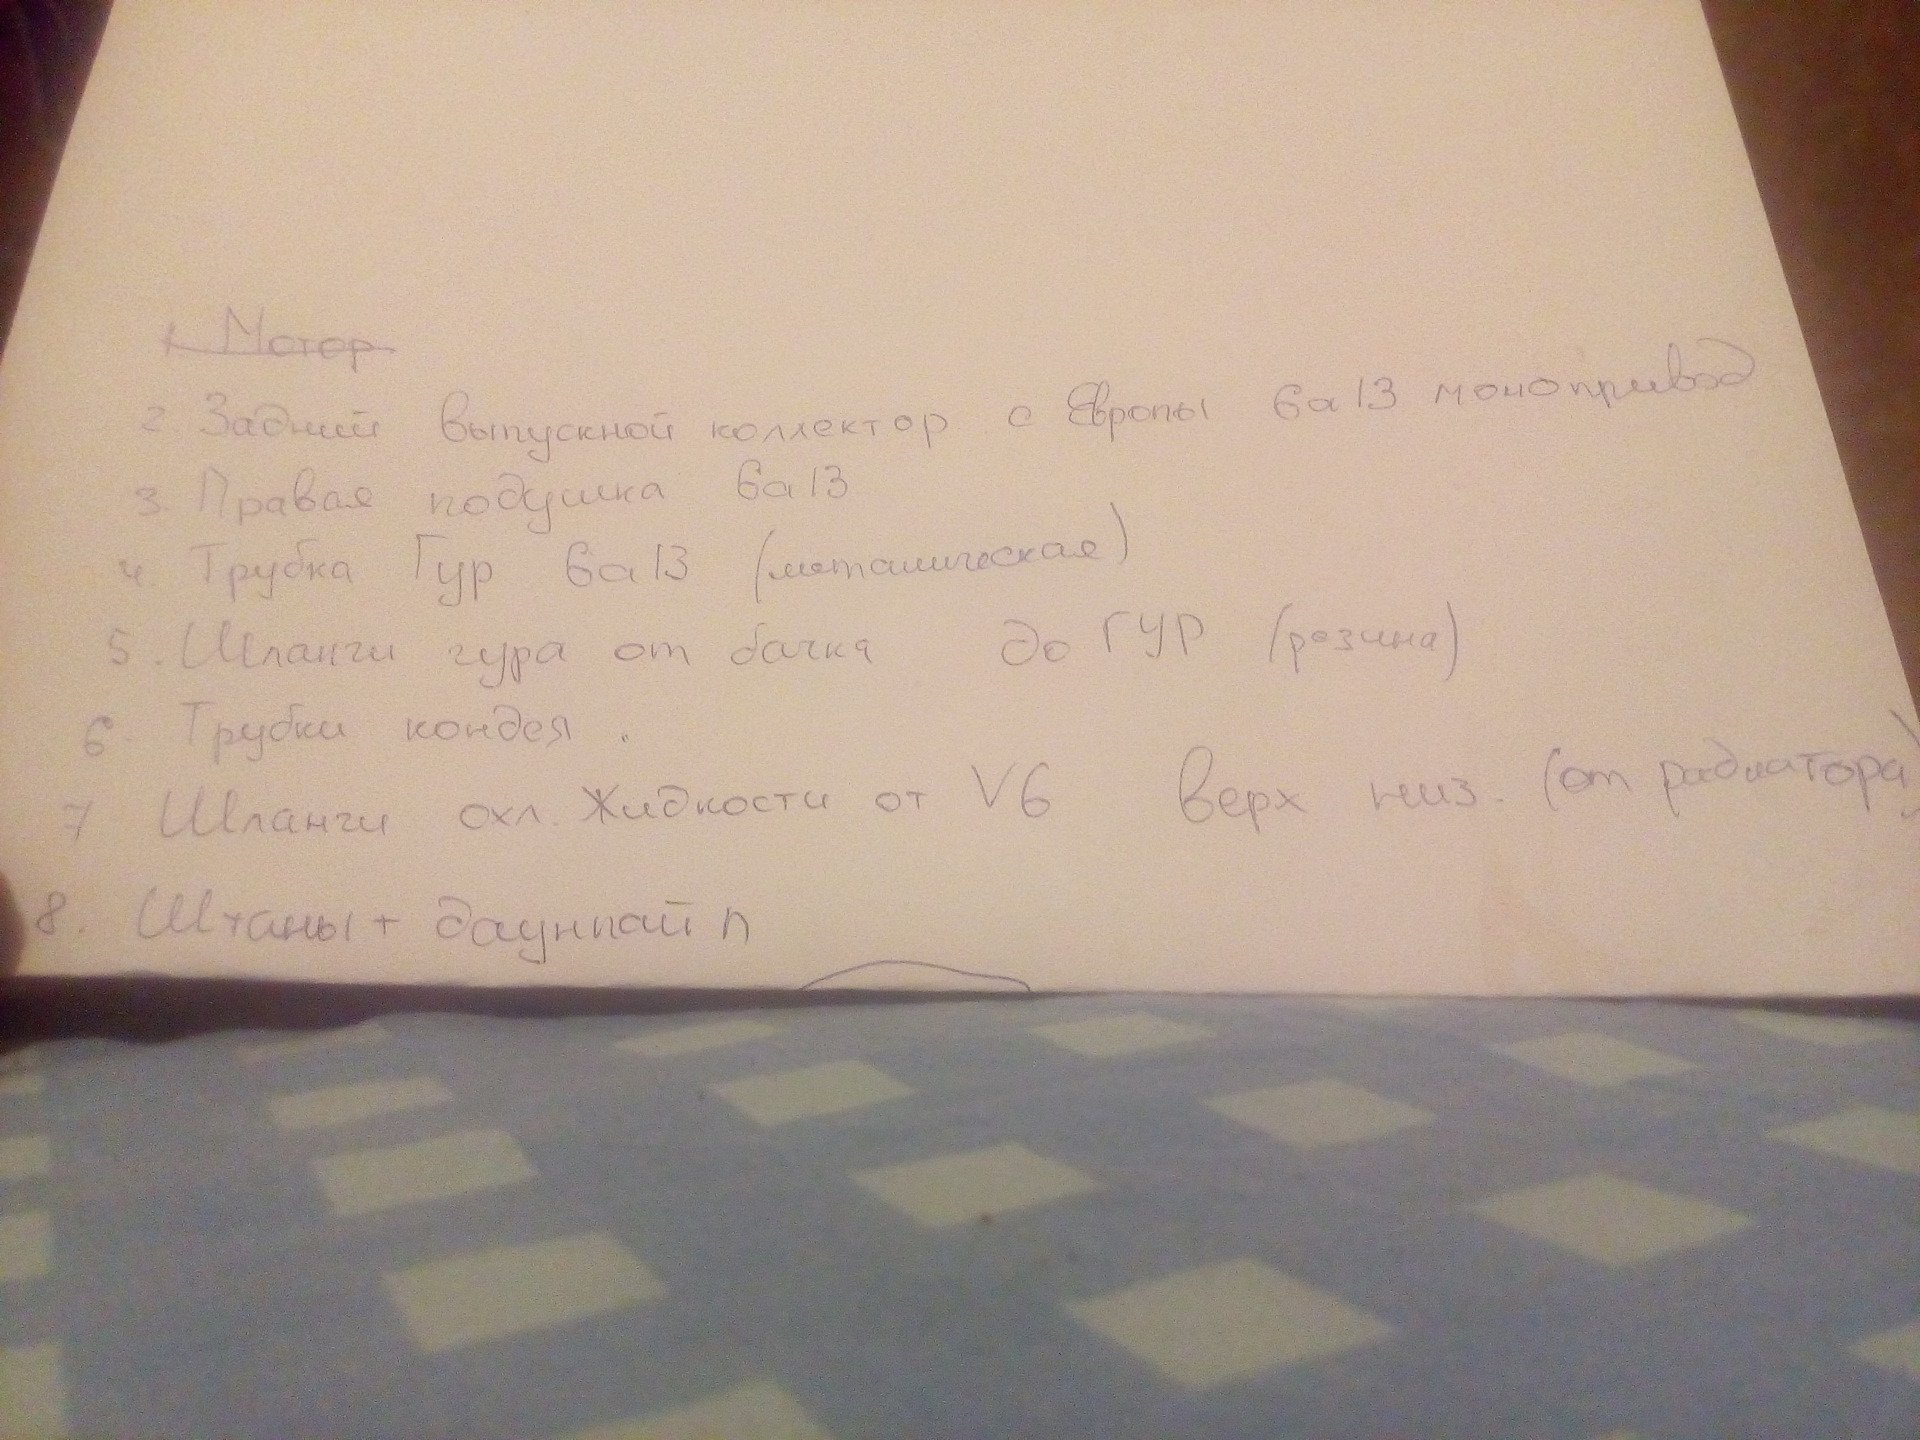 1. Мотор
2. Задний выпускной коллектор с Европы 6а13 монопривод
3. Правая подушка 6а13
4. Трубка Гур 6а13 (металическая)
5. Шланги гура от бачка до ГУР (резина)
6. Трубки кондея.
7 Шланги охл. Жидкости от V6 верх низ. (от радиатора)
8. Штаны + даунпайп